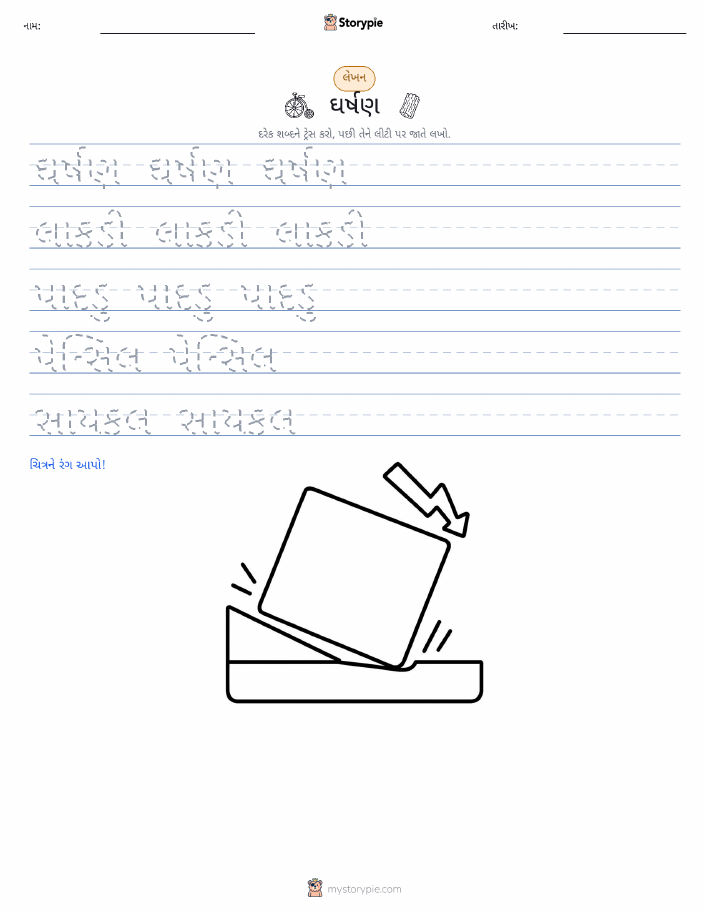 નામ: Storypie તારીખ:
લેખન
ઘર્ષણ
દરેક શબ્દને ટ્રેસ કરો, પછી તેને લીટી પર જાતે લખો.
ઘર્ષણ ઘર્ષણ ઘર્ષણ
લાકડી લાકડી લાકડી
પાદડુ પાદડુ પાદડુ
પેન્સિલ પેન્સિલ
સાયકલ સાયકલ
ચિત્રને રંગ આપો!
mystorypie.com